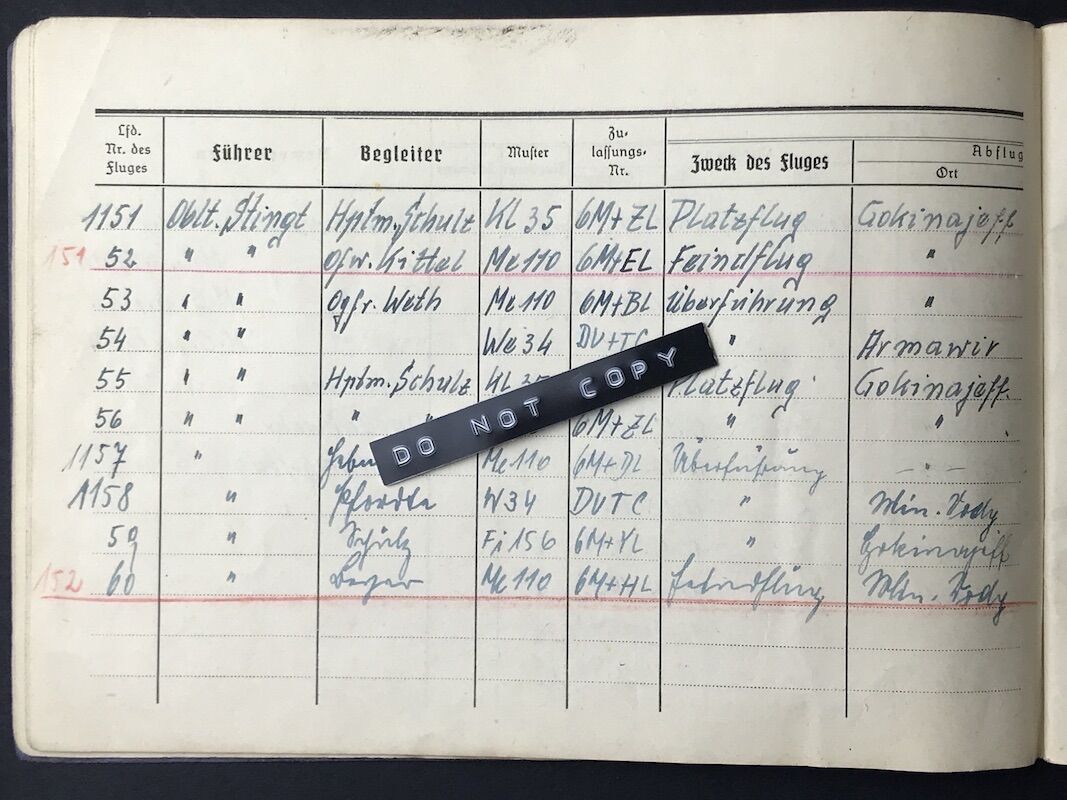 Lfd. Nr. des Fluges Führer Begleiter Muster Zu- lassungs- Nr. Zweck des Fluges Abflug Ort
1151 Oblt. Stingt Hptm. Schulz Kl 35 6M+ZL Platzflug Gokinajeff
151 52 " " Ofw. Kittel Me 110 6M+EL Feindflug "
53 " " Ogfr. Weth Me 110 6M+BL Überführung "
54 " " We 34 DV+TC " Armawir
55 " " Hptm. Schulz Kl 35 Platzflug Gokinajeff
DO NOT COPY
56 " " " " 6M+ZL " "
1157 " Me 110 6M+DL Überführung - " -
1158 " Pfordte W34 DVTC " Min. Vody
59 " Schulz Fi 156 6M+YL " Gokinajeff
152 60 " Me 110 6M+HL Feindflug Min. Vody